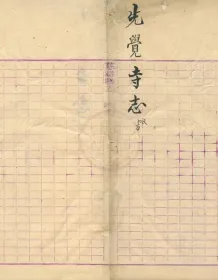 先覺寺志